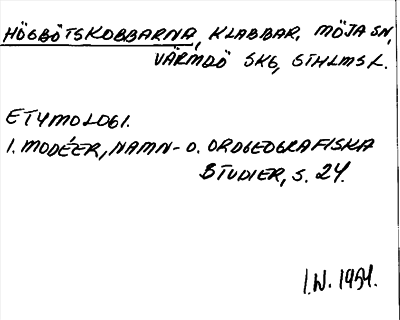 HÖGBÖTSKOBBARNA, KLABBAR, MÖJA SN,
VÄRMDÖ SKG, STHLMS L.
ETYMOLOGI.
I. MODÉER, NAMN- O. ORDGEOGRAFISKA
STUDIER, S. 24.
I.W. 1954.